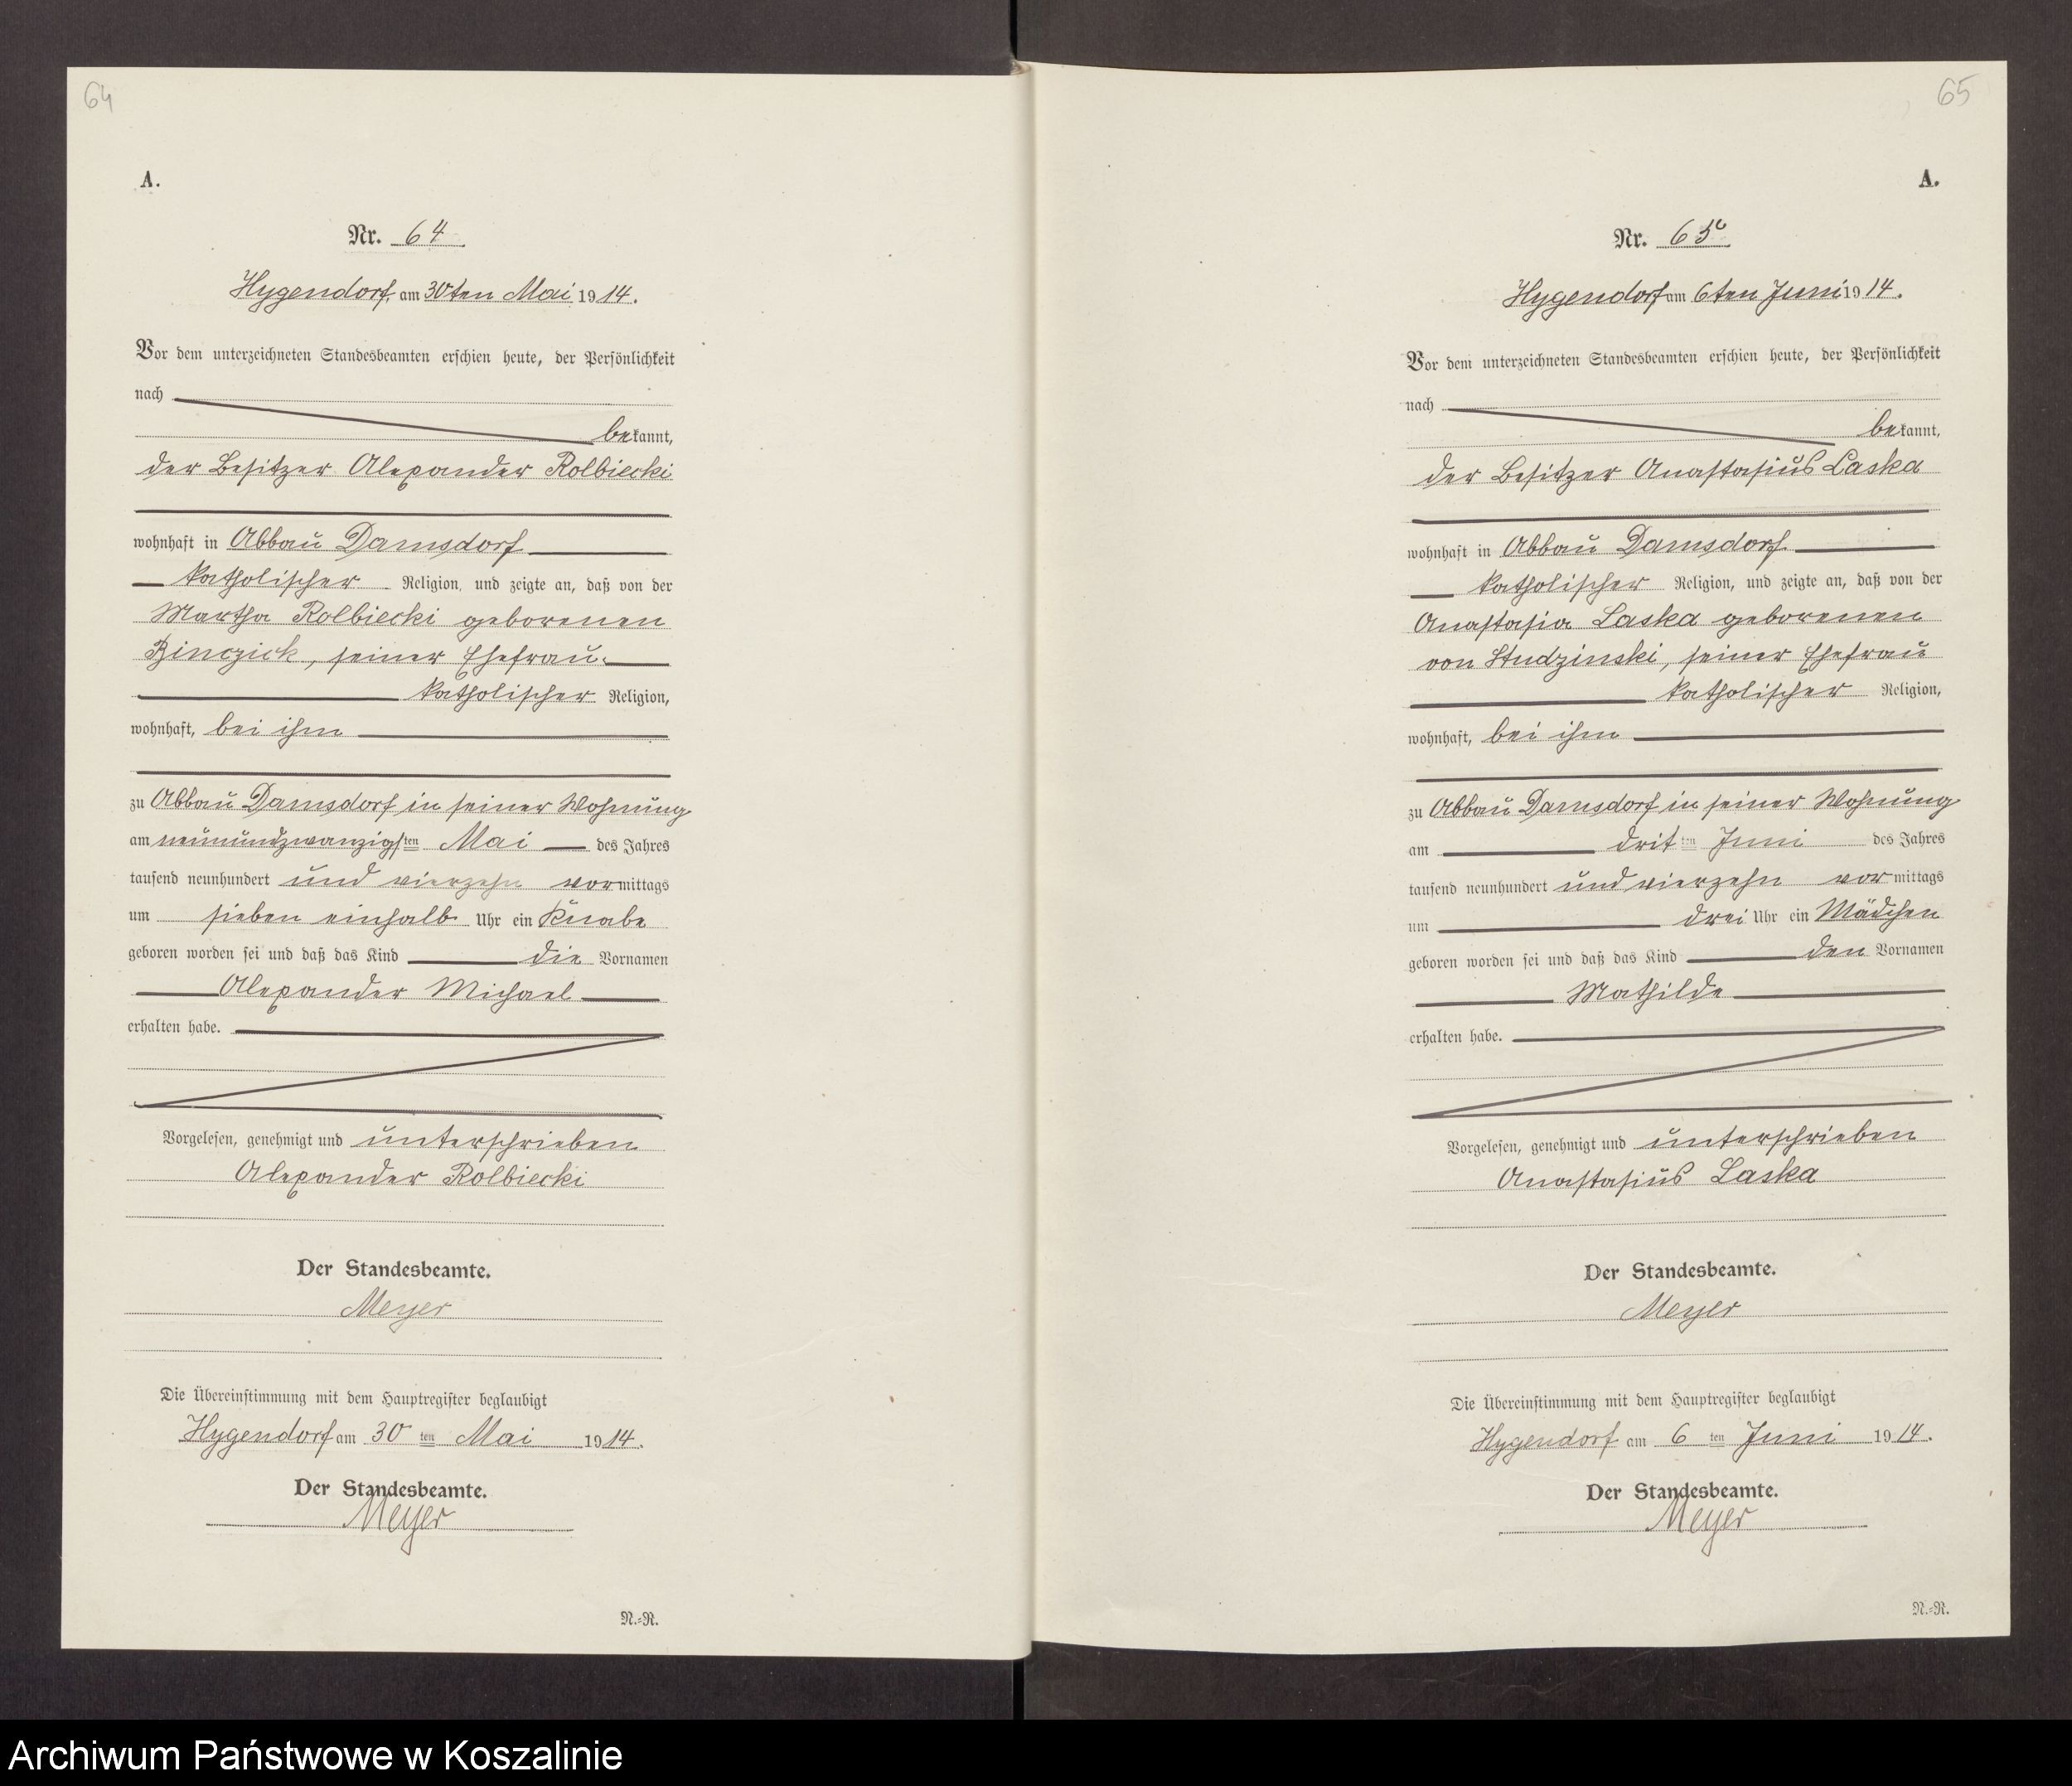 64
A.
Nr. 64
Hygendorf, am 30ten Mai 1914.
Vor dem unterzeichneten Standesbeamten erschien heute, der Persönlichkeit
nach
bekannt,
der Besitzer Alexander Rolbiecki
wohnhaft in Abbau Damsdorf
katholischer Religion, und zeigte an, daß von der
Martha Rolbiecki geborenen
Binczick, seiner Ehefrau
katholischer Religion,
wohnhaft, bei ihm
zu Abbau Damsdorf in seiner Wohnung
am neunundzwanzigsten Mai des Jahres
tausend neunhundert und vierzehn vormittags
um sieben einhalb Uhr ein Knabe
geboren worden sei und daß das Kind die Vornamen
Alexander Michael
erhalten habe.
Vorgelesen, genehmigt und unterschrieben
Alexander Rolbiecki
Der Standesbeamte.
Meyer
Die Übereinstimmung mit dem Hauptregister beglaubigt
Hygendorf am 30 ten Mai 1914.
Der Standesbeamte.
Meyer
N.-R.
65
A.
Nr. 65
Hygendorf am 6ten Juni 1914.
Vor dem unterzeichneten Standesbeamten erschien heute, der Persönlichkeit
nach
bekannt,
der Besitzer Anastasius Laska
wohnhaft in Abbau Damsdorf
katholischer Religion, und zeigte an, daß von der
Anastasia Laska geborenen
von Studzinski, seiner Ehefrau
katholischer Religion,
wohnhaft, bei ihm
zu Abbau Damsdorf in seiner Wohnung
am dritten Juni des Jahres
tausend neunhundert und vierzehn vormittags
um drei Uhr ein Mädchen
geboren worden sei und daß das Kind den Vornamen
Mathilde
erhalten habe.
Vorgelesen, genehmigt und unterschrieben
Anastasius Laska
Der Standesbeamte.
Meyer
Die Übereinstimmung mit dem Hauptregister beglaubigt
Hygendorf am 6 ten Juni 1914.
Der Standesbeamte.
Meyer
N.-R.
Archiwum Państwowe w Koszalinie